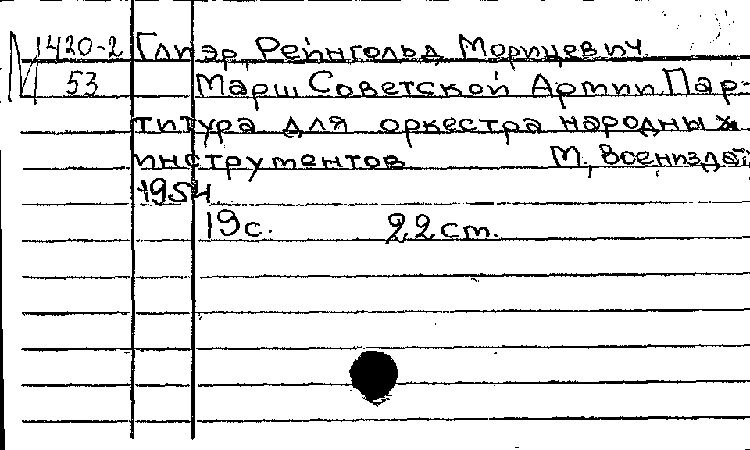 М 420-2 Глиэр, Рейнгольд Морицевич
53 Марш Советской Армии Пар-
титура для оркестра народных
инструментов М, Воениздат,
1954
19 с. 22 ст.